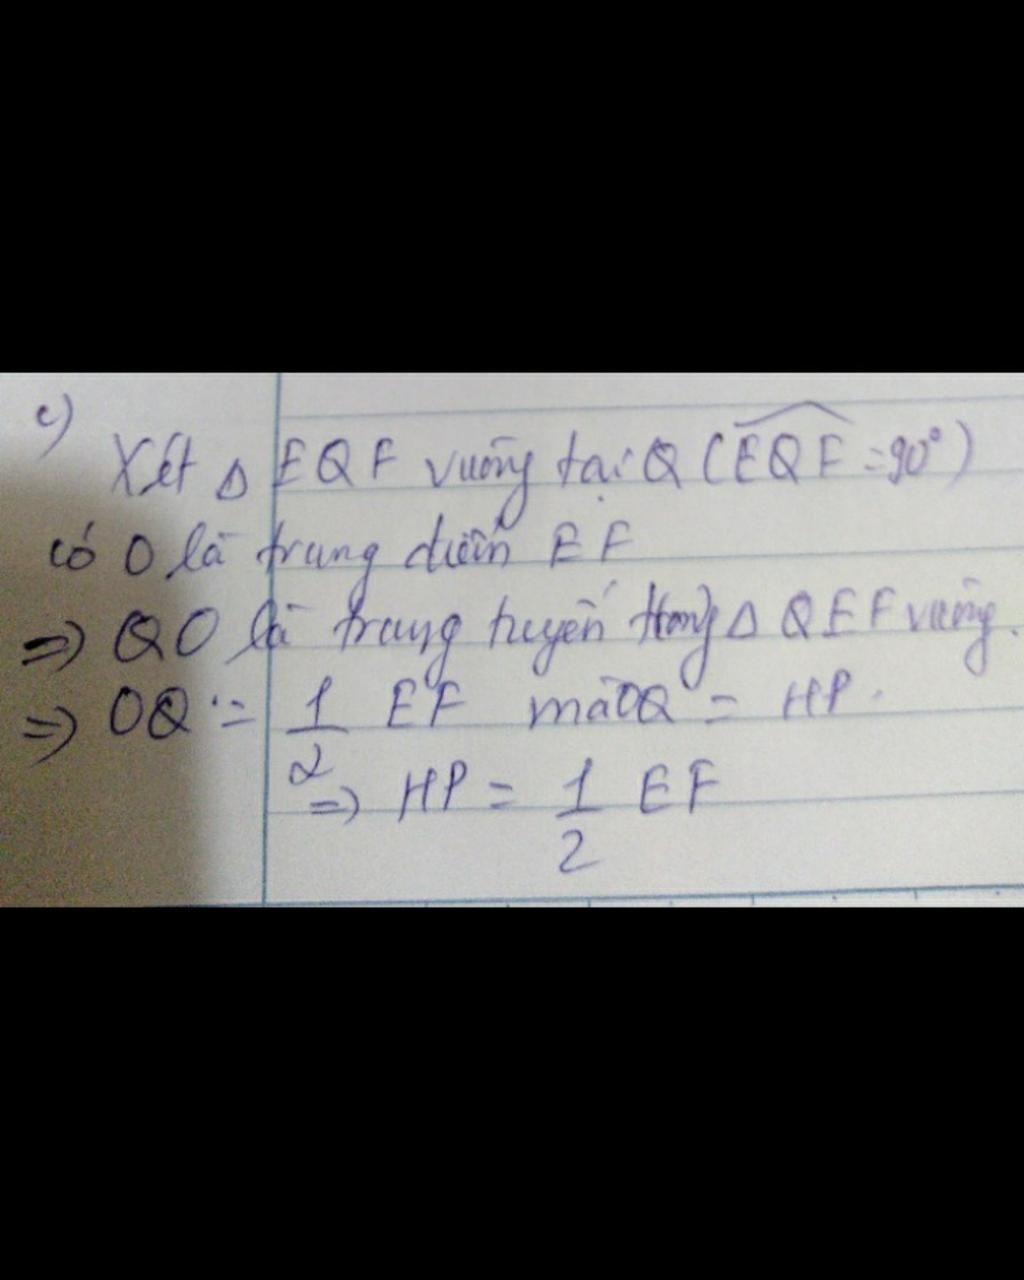 c)
Xét Δ EQF vuông tại Q (EQF = 90°)
có O là trung điểm EF
=> QO là trung tuyến trong Δ QEF vuông.
=> OQ = 1/2 EF mà OQ = HP.
=> HP = 1/2 EF